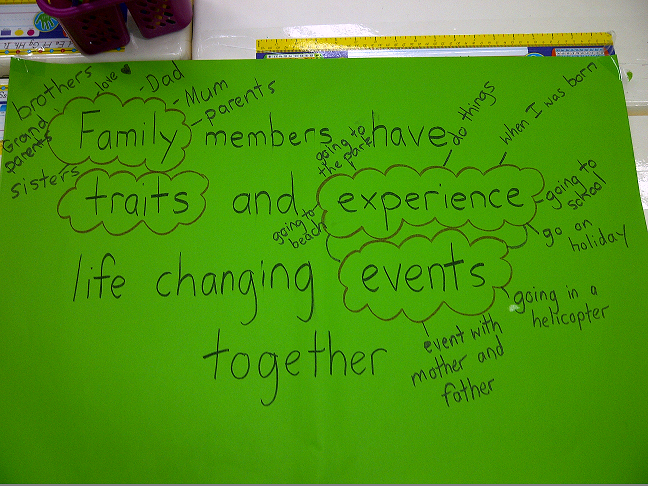 brothers
love
- Dad
- Mum
- parents
Grand
parents
sisters
Family members have
going to
the park
do things
when I was born
traits and experience
going to
beach
going to
school
go on
holiday
life changing events
going in a
helicopter
together
event with
mother and
father